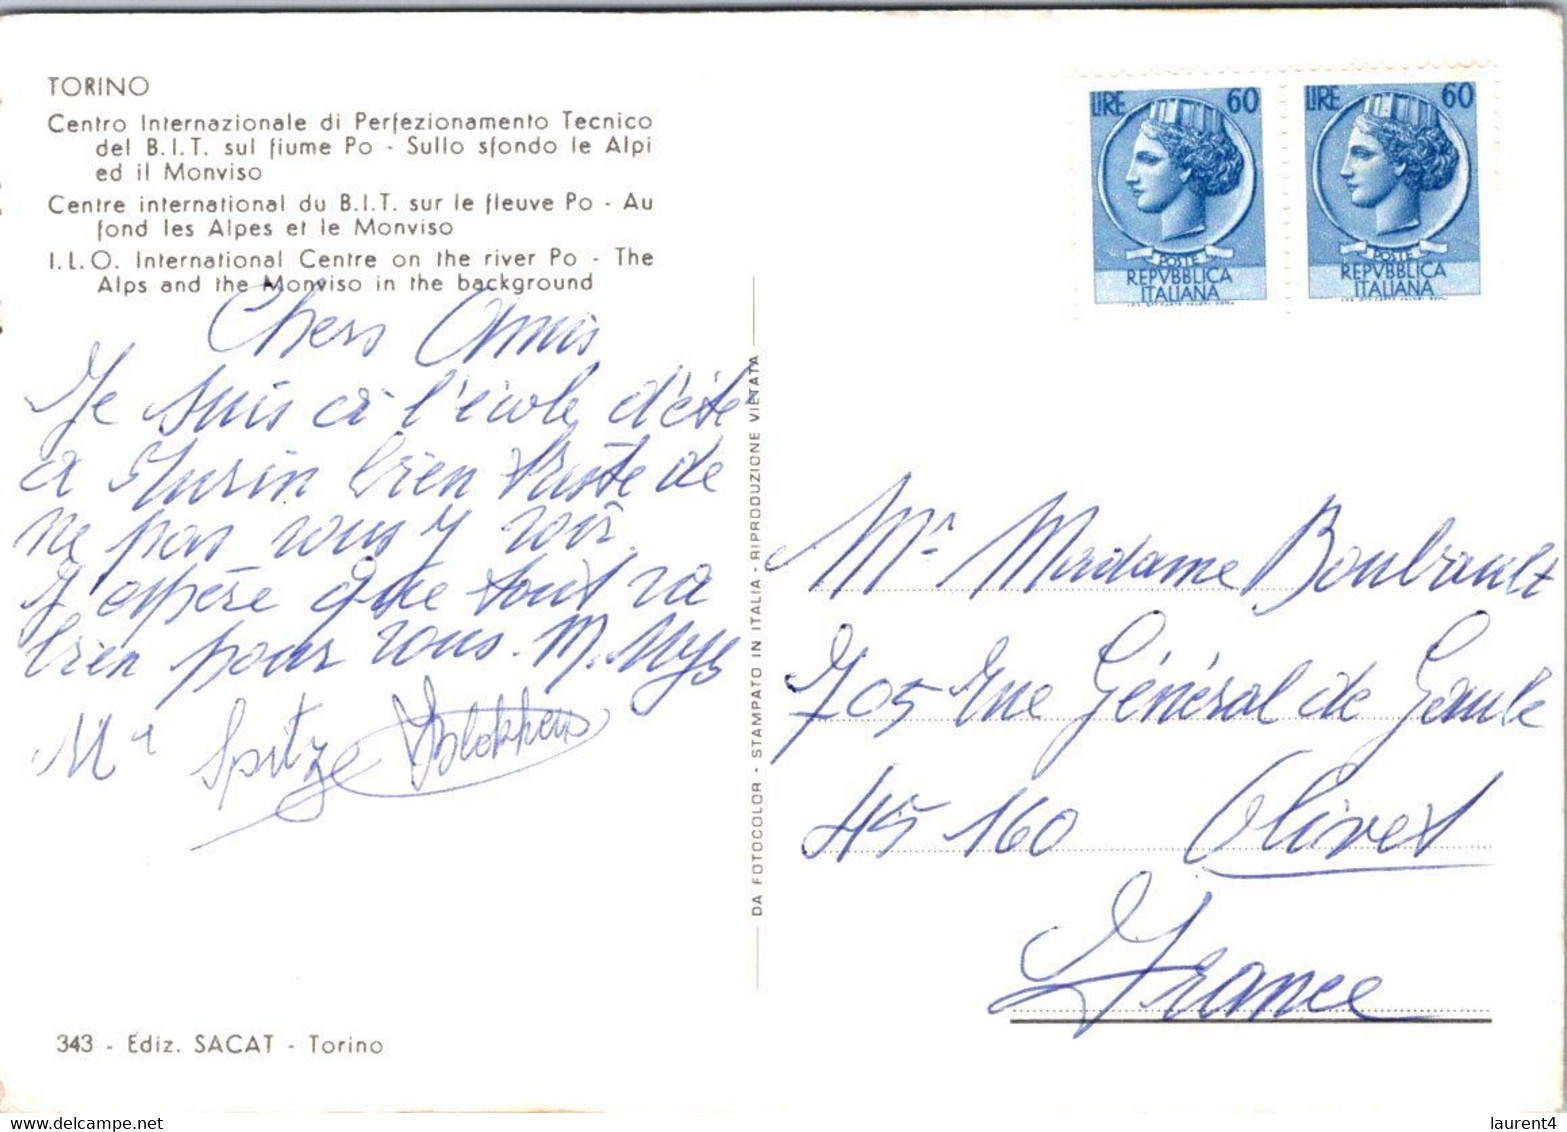 TORINO
Centro Internazionale di Perfezionamento Tecnico
del B.I.T. sul fiume Po - Sullo sfondo le Alpi
ed il Monviso
Centre international du B.I.T. sur le fleuve Po - Au
fond les Alpes et le Monviso
I.L.O. International Centre on the river Po - The
Alps and the Monviso in the background
Chers Amis
Je suis à l'école d'été
à Turin bien triste de
ne pas vous y voir.
J'espère que tout va
bien pour vous. M.
Mª Spitz
343 - Ediz. SACAT - Torino
DA FOTOCOLOR - STAMPATO IN ITALIA - RIPRODUZIONE VIETATA
LIRE 60
POSTE
REPVBBLICA
ITALIANA
LIRE 60
POSTE
REPVBBLICA
ITALIANA
Mr Madame Boubault
705 rue Général de Gaule
45160 Olivet
France
www.delcampe.net
laurent4